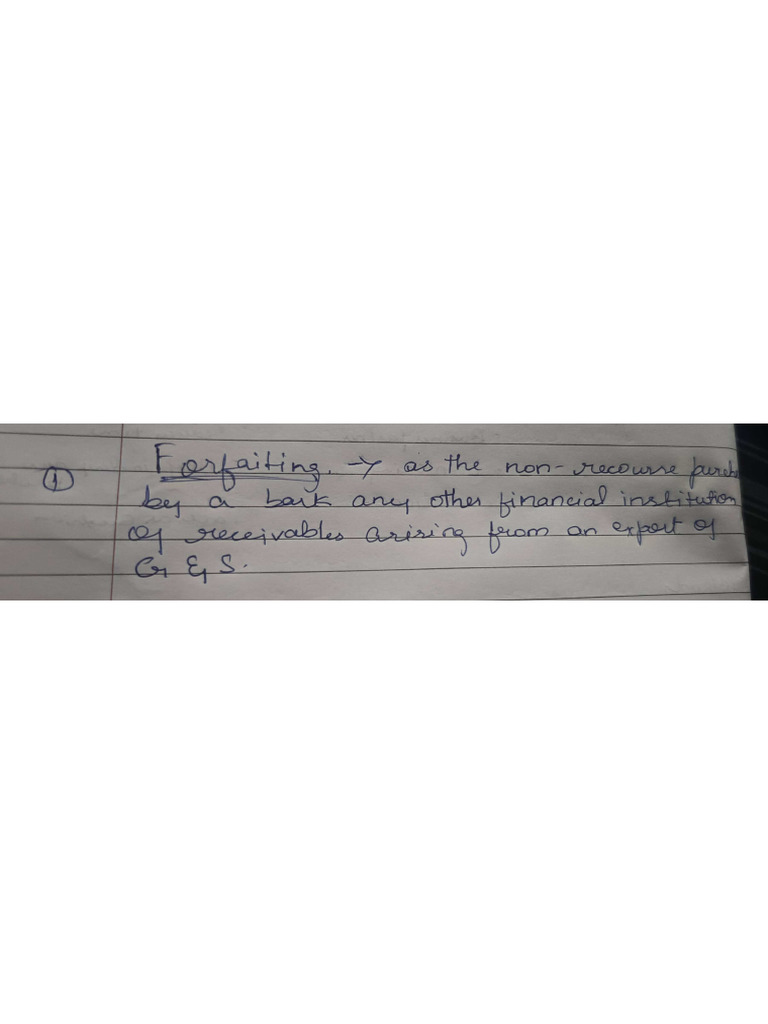 ① Forfaiting. → as the non-recourse purch
by a bank any other financial institution
of receivables arising from an export of
G & S.